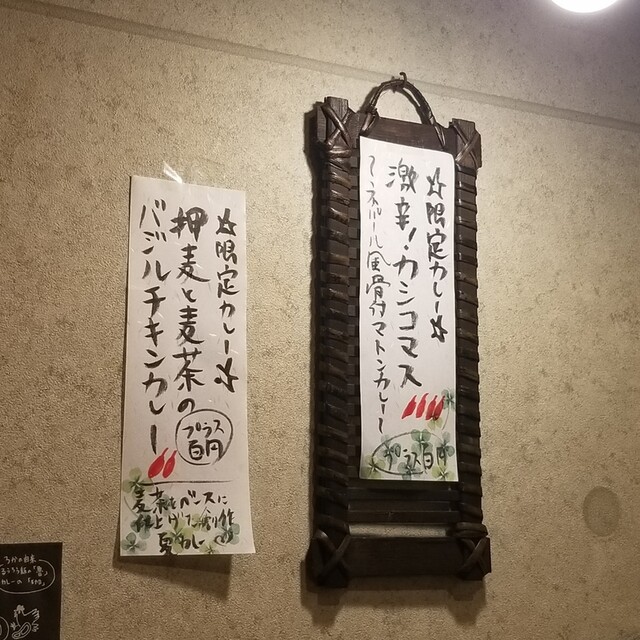 ☆限定カレー☆
激辛！カシコマス
〜ネパール風骨付マトンカレー〜
プラス百円
☆限定カレー☆
押麦と麦茶の
バジルチキンカレー
プラス
百円
麦茶をベースに
仕上げた創作
夏カレー